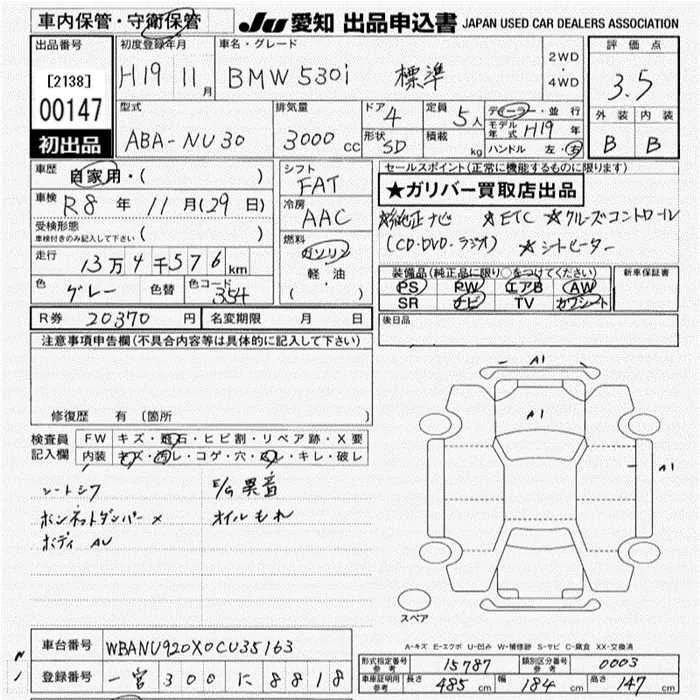 車内保管・守衛保管
JU 愛知 出品申込書 JAPAN USED CAR DEALERS ASSOCIATION
出品番号
[2138]
00147
初出品
初度登録年月
H19 11月
車名・グレード
BMW 530i 標準
2WD
・
4WD
評価点
3.5
外装 内装
B B
型式
ABA-NU30
排気量
3000cc
ドア 4
形状 SD
定員 5人
積載 kg
ディーラー・並行
モデル年式 H19年
ハンドル 左・右
車歴
自家用・( )
車検
R8年 11月(29日)
受検形態
車検付きのみ記入して下さい ( )
走行
13万4千576km
色 グレー 色替 色コード 354
シフト
FAT
冷房
AAC
燃料
ガソリン
軽・油
( )
セールスポイント(正常に機能するものに限ります)
★ガリバー買取店出品
☆純正ナビ ☆ETC ☆クルーズコントロール
(CD・DVD・ラジオ) ☆シートヒーター
装備品(純正品に限り○をつけてください)
PS PW エアB AW
SR ナビ TV カワシート
新車保証書
後日品
R券 20370円 名変期限 月 日
注意事項申告欄(不具合内容等は具体的に記入して下さい)
修復歴 有(箇所
検査員記入欄
FW キズ・飛石・ヒビ割・リペア跡・X要
内装 キズ・汚レ・コゲ・穴・スレ・キレ・破レ
シートシワ E/G異音
ボンネットダンパー× オイルもれ
ボディ AU
A1
A1
A1
スペア
A-キズ E-エクボ U-凹み W-補修跡 S-サビ C-腐食 XX-交換済
車台番号 WBANU920X0CU35163
登録番号 一宮300に8818
形式指定番号 参考 15787 類別区分番号 参考 0003
車庫証明用 参考 長さ 485cm 幅 184cm 高さ 147cm